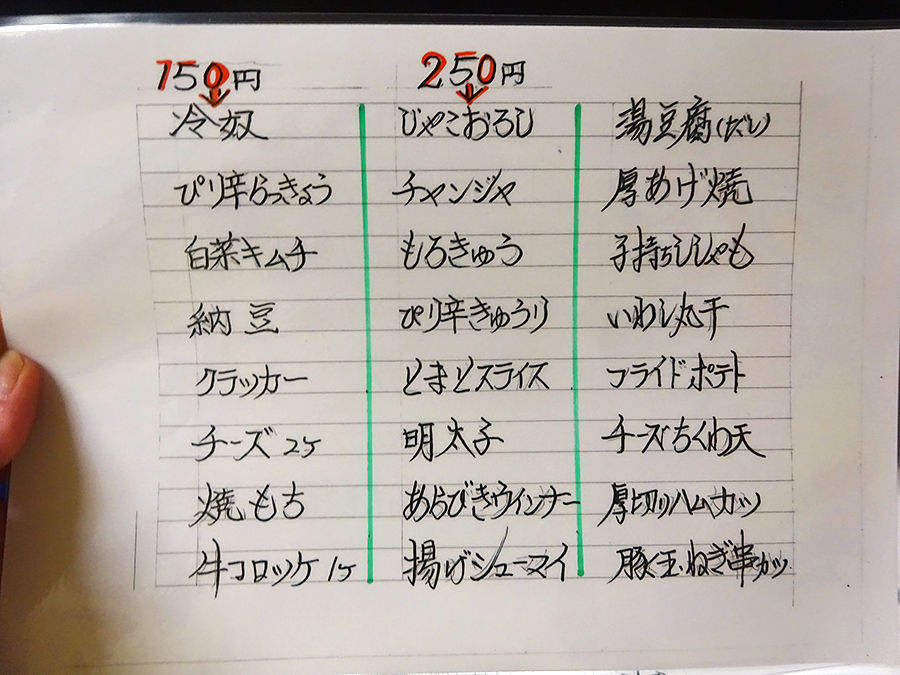 150円
冷奴
ぴり辛らっきょう
白菜キムチ
納豆
クラッカー
チーズ 2ヶ
焼もち
牛コロッケ 1ヶ
250円
じゃこおろし
チャンジャ
もろきゅう
ぴり辛きゅうり
とまとスライス
明太子
あらびきウインナー
揚げシューマイ
湯豆腐(だし)
厚あげ焼
子持ちししゃも
いわし丸干
フライドポテト
チーズちくわ天
厚切りハムカツ
豚玉ねぎ串カツ